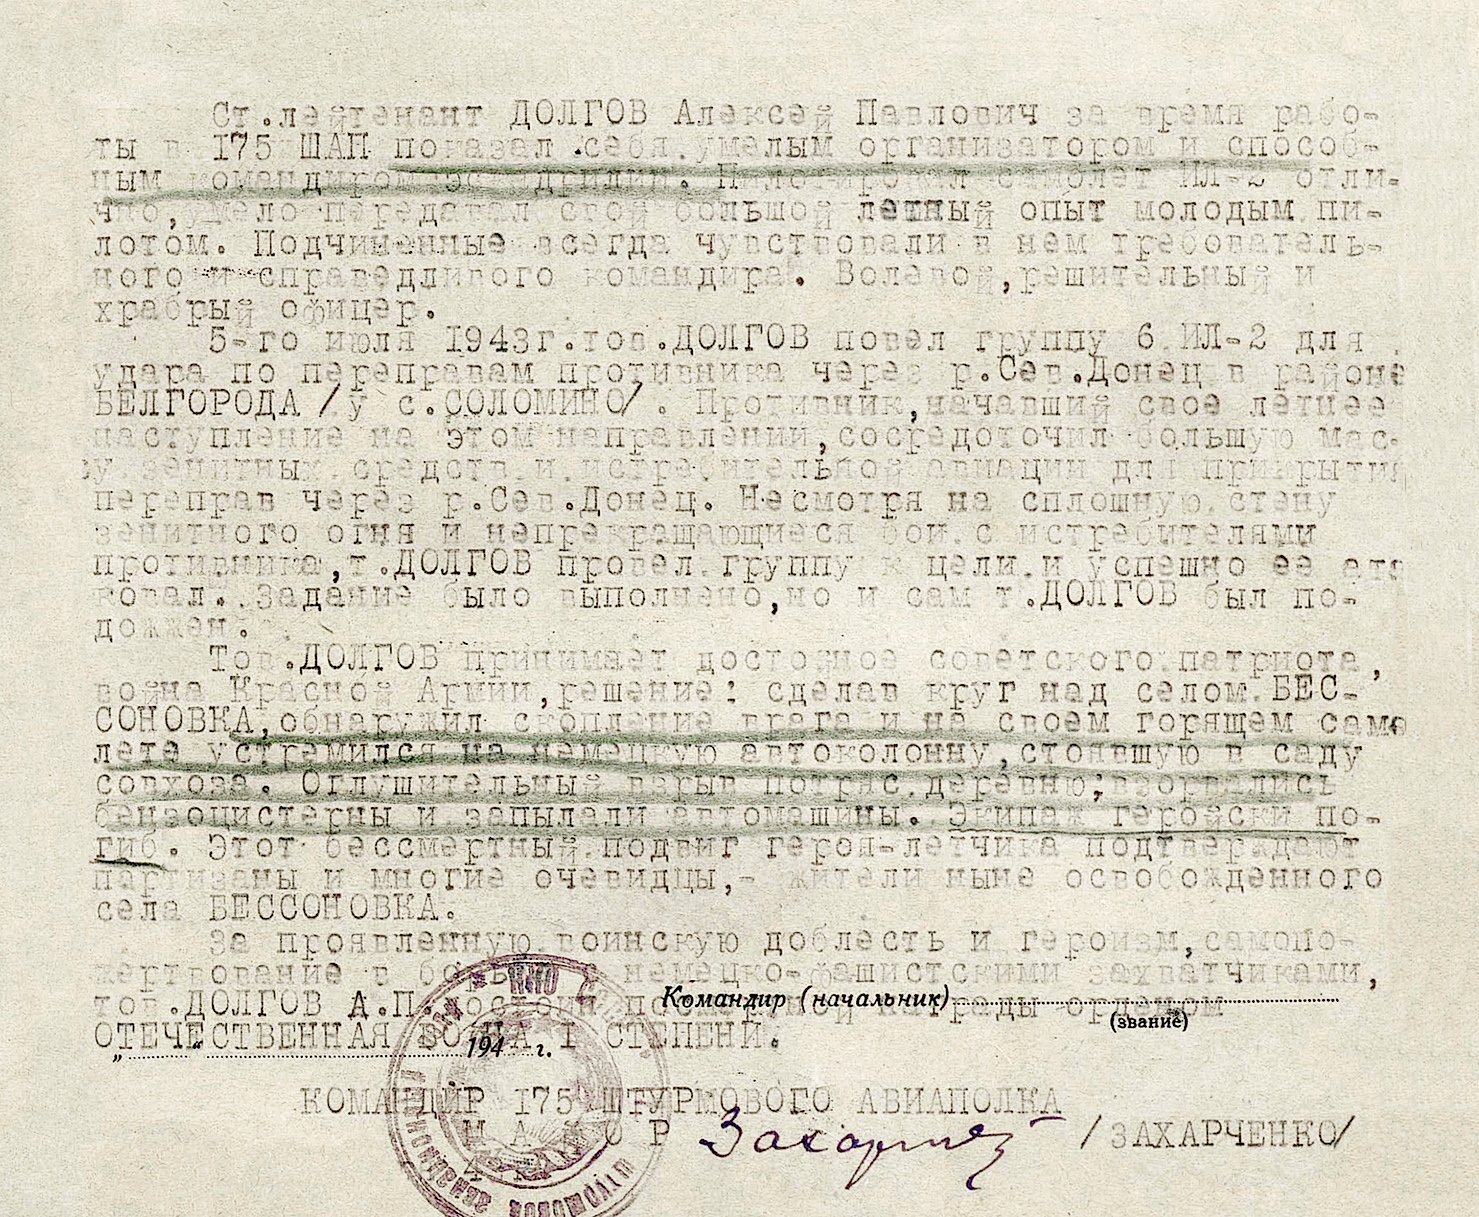 Ст.лейтенант ДОЛГОВ Алексей Павлович за время рабо-
ты в 175 ШАП показал себя умелым организатором и способ-
ным командиром эскадрилии. Пилотировал самолет ИЛ-2 отли-
чно, умело передавал свой большой летный опыт молодым пи-
лотом. Подчиненные всегда чувствовали в нем требователь-
ного и справедливого командира. Волевой,решительный и
храбрый офицер.
5-го июля 1943г.тов.ДОЛГОВ повел группу 6 ИЛ-2 для
удара по переправам противника через р.Сев.Донец в районе
БЕЛГОРОДА /у с.СОЛОМИНО/. Противник,начавший свое летнее
наступление на этом направлении,сосредоточил большую мас-
су зенитных средств и истребительной авиации для прикрытия
переправ через р.Сев.Донец. Несмотря на сплошную стену
зенитного огня и непрекращающиеся бои с истребителями
противника,т.ДОЛГОВ провел группу к цели и успешно ее ата
ковал. Задание было выполнено,но и сам т.ДОЛГОВ был по-
дожжен.
Тов.ДОЛГОВ принимает достойное советского патриота,
война Красной Армии,решение: сделав круг над селом БЕС-
СОНОВКА,обнаружил скопление врага и на своем горящем само
лете устремился на немецкую автоколонну,стоявшую в саду
совхоза. Оглушительный взрыв потряс деревню;взорвались
бензоцистерны и запылали автомашины. Экипаж геройски по-
гиб. Этот бессмертный подвиг героя-летчика подтверждают
партизаны и многие очевидцы,- жители ныне освобожденного
села БЕССОНОВКА.
За проявленную воинскую доблесть и героизм,самопо-
жертвование в борьбе с немецко-фашистскими захватчиками,
тов.ДОЛГОВ А.П. достоин посмертной награды орденом
Командир (начальник)
(звание)
ОТЕЧЕСТВЕННАЯ ВОЙНА I СТЕПЕНИ.
„ “ 194 г.
КОМАНДИР 175 ШТУРМОВОГО АВИАПОЛКА
МАЙОР Захарченко /ЗАХАРЧЕНКО/